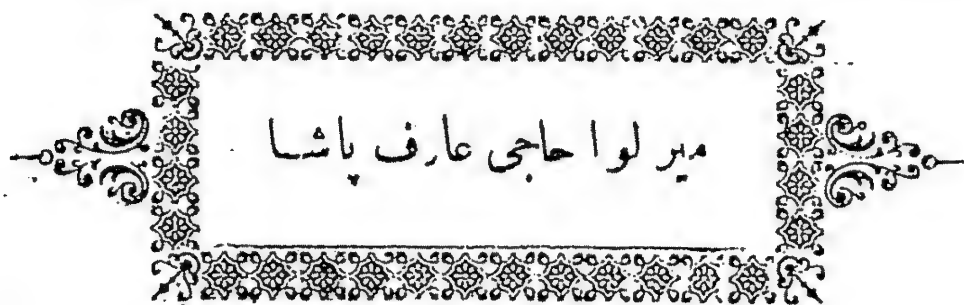 میر لوا حاجی عارف پاشا